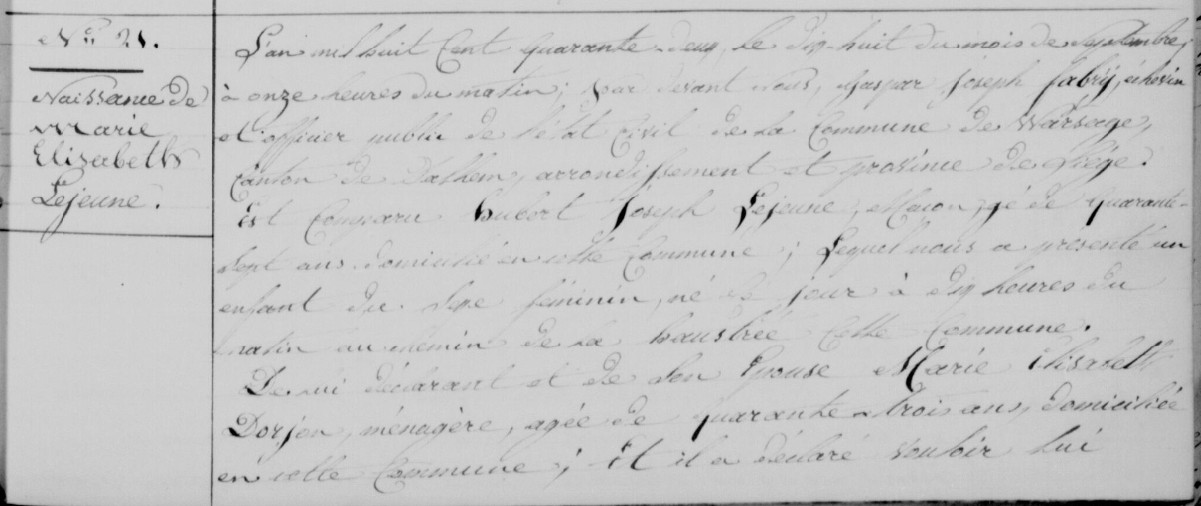 N° 21.
Naissance de
Marie
Elisabeth
Lejeune.
L'an mil huit Cent quarante-deux, le dix-huit du mois de Septembre,
à onze heures du matin ; par devant nous, Gaspar Joseph Fabry, échevin
et officier public de l'état Civil de la Commune de Warsage,
Canton de Dalhem, arrondissement et province de Liége.
Est Comparu hubert Joseph Lejeune, Macon, agé de quarante-
sept ans domicilié en cette Commune ; Lequel nous a presenté un
enfant du Sexe féminin, né ce jour à dix heures du
matin au chemin de la Cette Commune.
De lui déclarant et de Son Epouse Marie Elisabeth
Dorjon, ménagère, agée de quarante-trois ans, domiciliée
en cette Commune ; Et il a déclaré vouloir lui